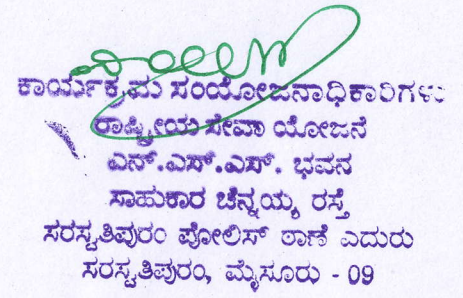 ಕಾರ್ಯಕ್ರಮ ಸಂಯೋಜನಾಧಿಕಾರಿಗಳು
ರಾಷ್ಟ್ರೀಯ ಸೇವಾ ಯೋಜನೆ
ಎನ್.ಎಸ್.ಎಸ್. ಭವನ
ಸಾಹುಕಾರ ಚೆನ್ನಯ್ಯ ರಸ್ತೆ
ಸರಸ್ವತಿಪುರಂ ಪೋಲಿಸ್ ಠಾಣೆ ಎದುರು
ಸರಸ್ವತಿಪುರಂ, ಮೈಸೂರು - 09